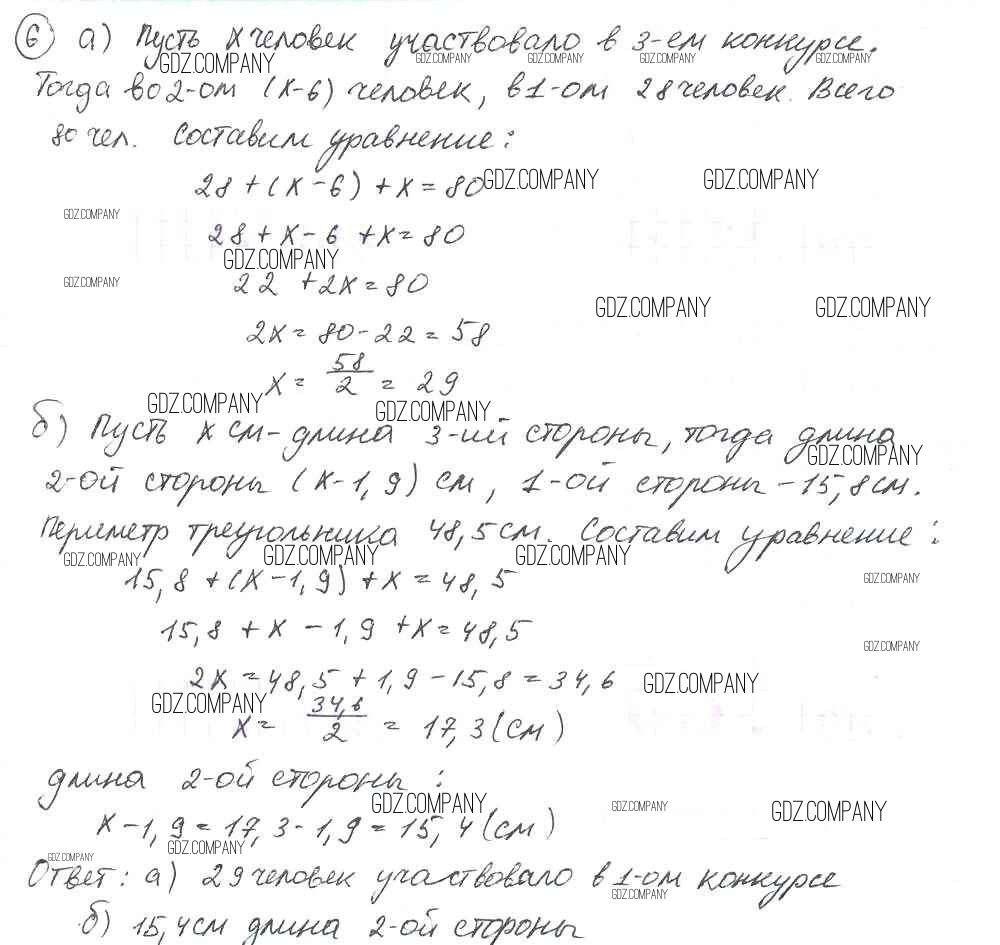 6 а) Пусть x человек участвовало в 3-ем конкурсе.
GDZ.COMPANY GDZ.COMPANY GDZ.COMPANY GDZ.COMPANY GDZ.COMPANY
Тогда во 2-ом (x-6) человек, в 1-ом 28 человек. Всего
80 чел. Составим уравнение:
28 + (x - 6) + x = 80 GDZ.COMPANY GDZ.COMPANY
GDZ.COMPANY
28 + x - 6 + x = 80
GDZ.COMPANY
GDZ.COMPANY 22 + 2x = 80
GDZ.COMPANY GDZ.COMPANY
2x = 80 - 22 = 58
x = 58/2 = 29
GDZ.COMPANY GDZ.COMPANY
б) Пусть x см - длина 3-ий стороны, тогда длина
GDZ.COMPANY
2-ой стороны (x-1,9) см, 1-ой стороны - 15,8 см.
Периметр треугольника 48,5 см. Составим уравнение:
GDZ.COMPANY GDZ.COMPANY GDZ.COMPANY
15,8 + (x - 1,9) + x = 48,5 GDZ.COMPANY
15,8 + x - 1,9 + x = 48,5
GDZ.COMPANY
2x = 48,5 + 1,9 - 15,8 = 34,6 GDZ.COMPANY
GDZ.COMPANY
x = 34,6/2 = 17,3 (см)
длина 2-ой стороны:
GDZ.COMPANY GDZ.COMPANY GDZ.COMPANY
x - 1,9 = 17,3 - 1,9 = 15,4 (см)
GDZ.COMPANY GDZ.COMPANY
Ответ: а) 29 человек участвовало в 1-ом конкурсе
GDZ.COMPANY
б) 15,4 см длина 2-ой стороны